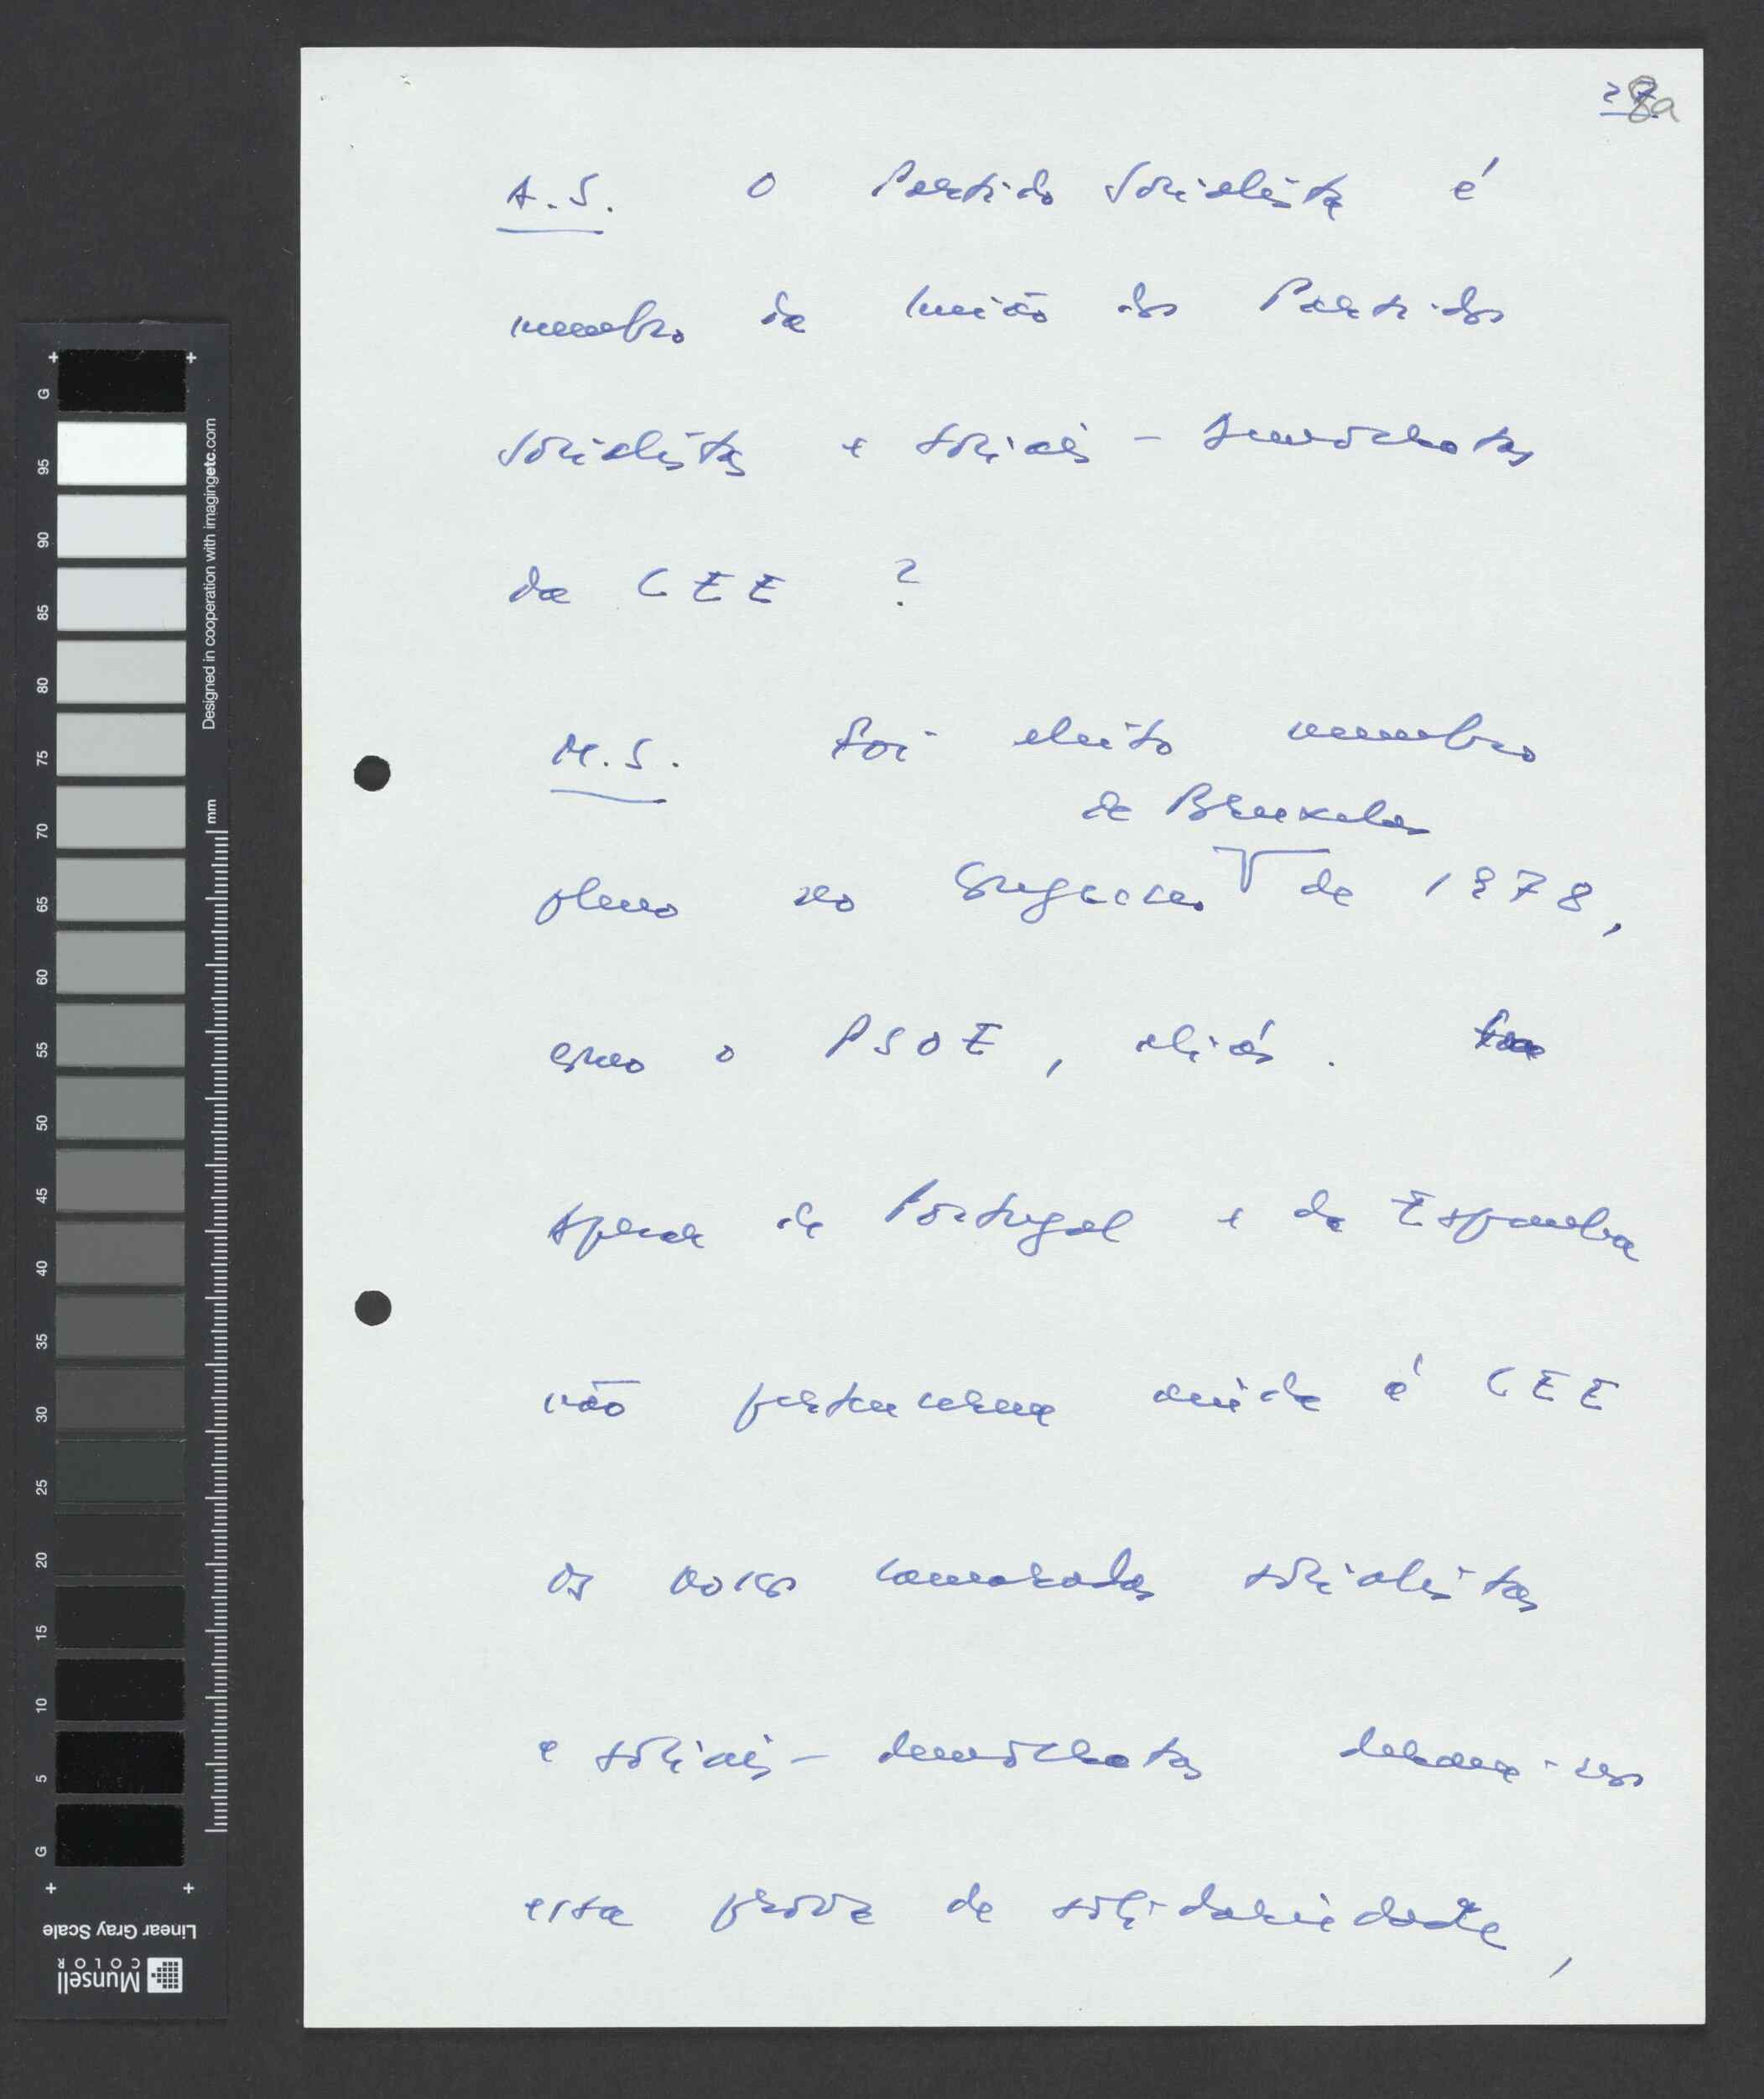 28a
A.S. O Partido Socialista é
membro da União dos Partidos
Socialistas e sociais-democratas
da CEE ?
M.S. Foi eleito membro
de Bruxelas
pleno no Congresso de 1978,
como o PSOE, aliás.
Apesar de Portugal e da Espanha
não pertencerem ainda à CEE
os nossos camaradas socialistas
e sociais-democratas deram-nos
essa prova de solidariedade,
Designed in cooperation with imagingetc.com
mm
G 95 90 85 80 75 70 65 60 55 50 45 40 35 30 25 20 15 10 5 G
Linear Gray Scale
Munsell
COLOR